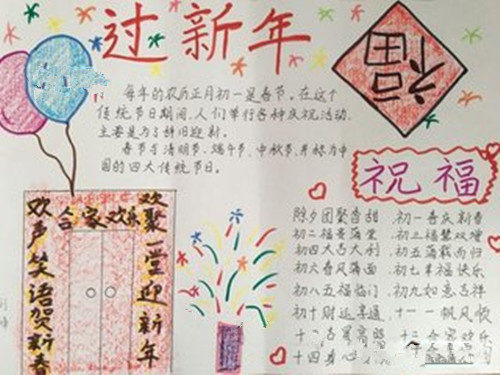 过新年
福
每年的农历正月初一是春节。在这个
传统节日期间，人们举行各种庆祝活动，
主要是为了辞旧迎新。
春节与清明节、端午节、中秋节，并称为中
国的四大传统节日。
祝福
合家欢乐
欢声笑语贺新春
欢聚一堂迎新年
除夕团聚香甜 初一喜庆新春
初二福景满堂 初三福慧双增
初四大吉大利 初五满载而归
初六春风满面 初七幸福快乐
初八五福临门 初九如意吉祥
初十财运亨通 十一一帆风顺
十二吉星高照 十三合家欢乐
十四身心